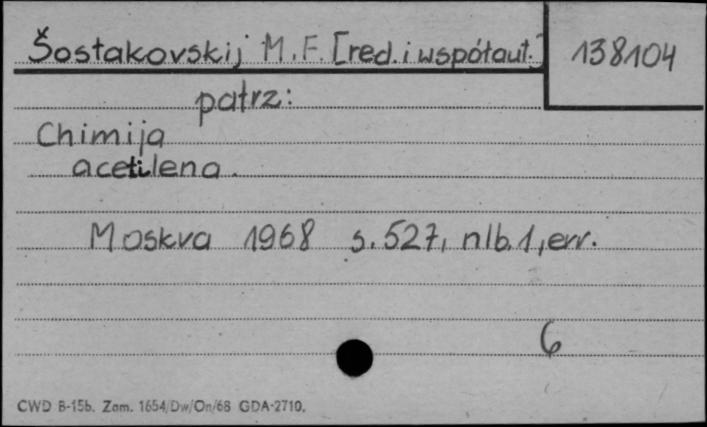 Šostakovskij M.F. [red. i współaut.]
138104
patrz:
Chimija
acetilena.
Moskva 1968 s. 527, nlb. 1, err.
6
CWD B-15b. Zam. 1654/Dw/On/68 GDA-2710.